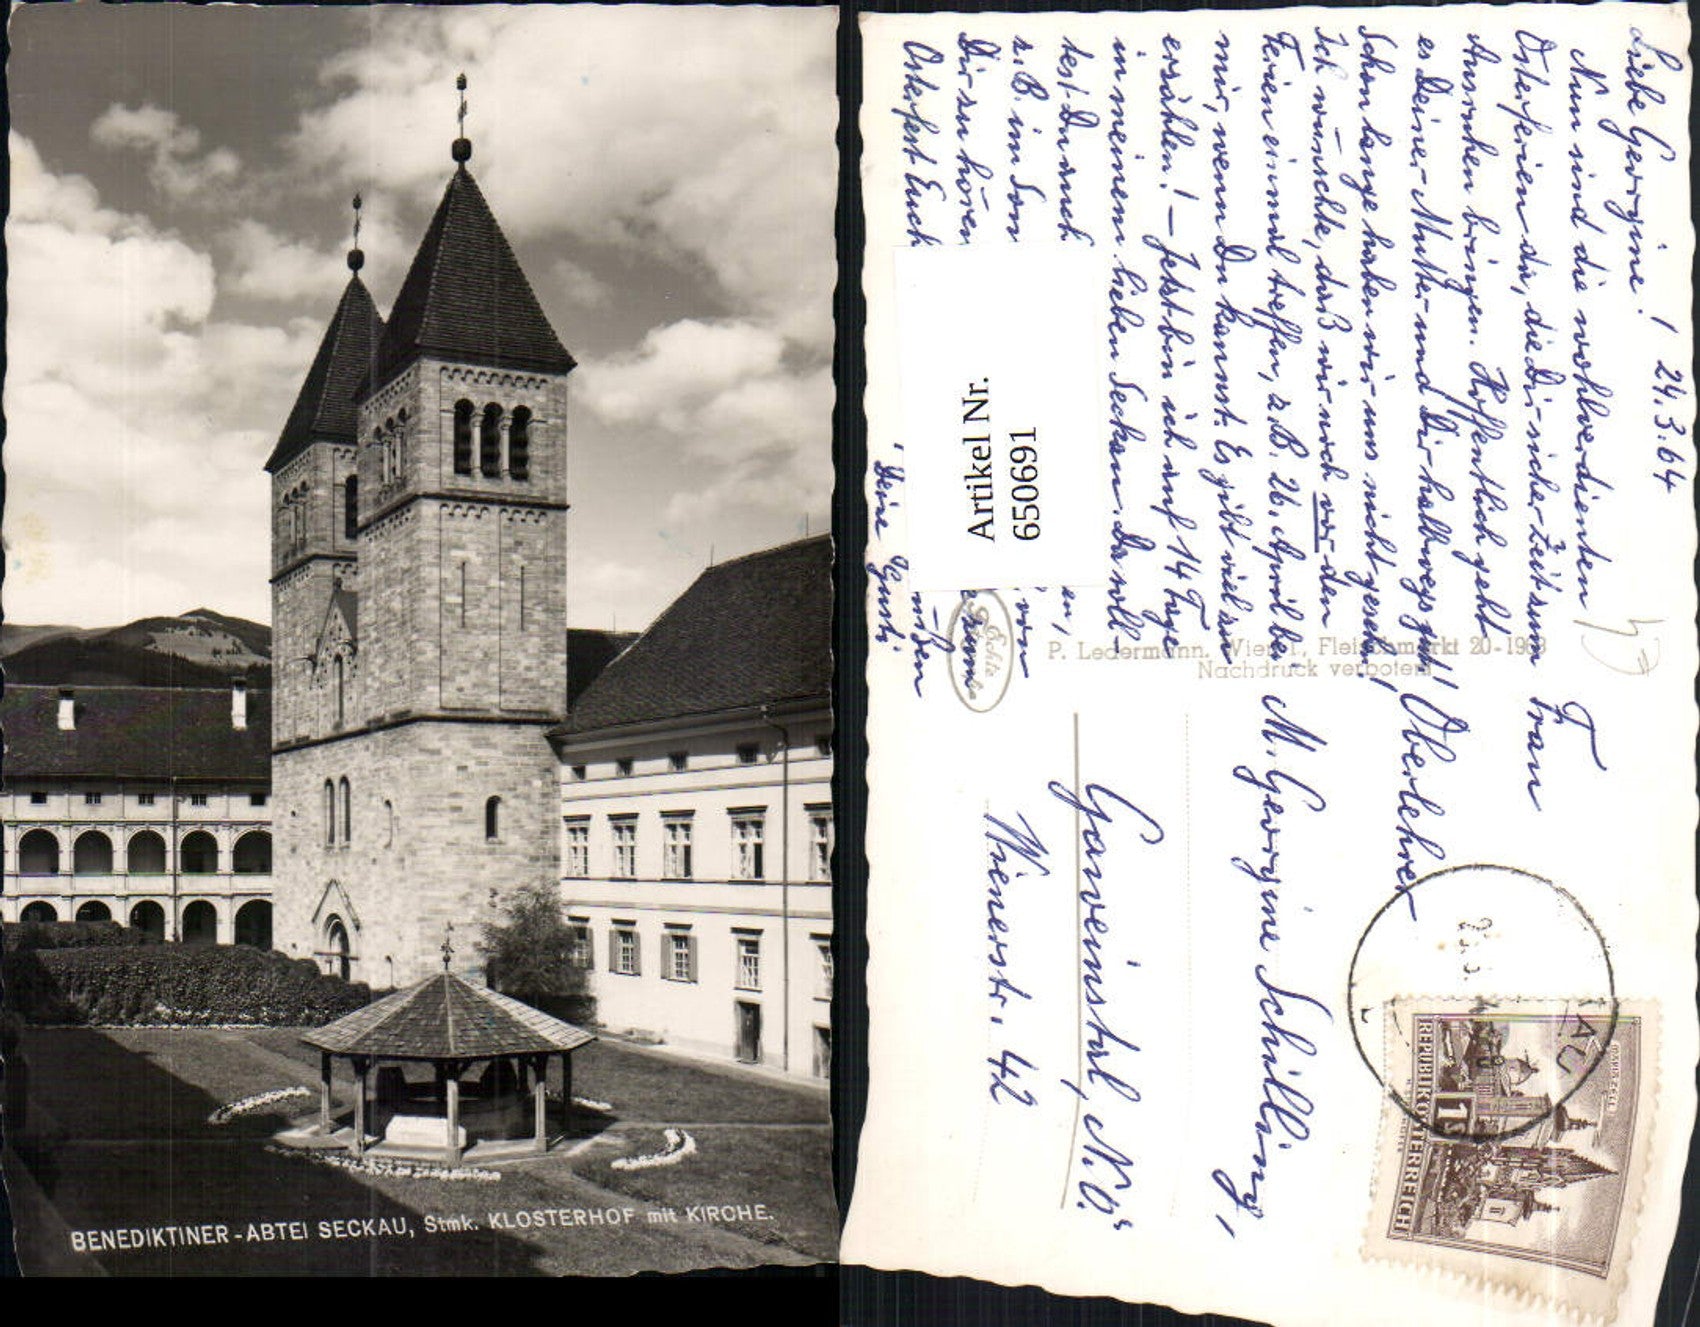 BENEDIKTINER-ABTEI SECKAU, Stmk. KLOSTERHOF mit KIRCHE.
24.3.64
Liebe Georgine!
Nun sind die wohlverdienten
Osterferien da, die Dir sicher Zeit zum
Ausruhen bringen. Hoffentlich geht
es Deiner Mutter und Dir halbwegs gut!
Schon lange haben wir uns nicht gesehen,
Ich wünschte, daß wir noch vor den
Ferien einmal treffen, z.B. 26. April bei
mir, wenn Du kannst. Es gibt viel zu
erzählen! – Jetzt bin ich auf 14 Tage
in meinem lieben Seckau. Da woll-
test Du auch
en,
z.B. im Som
von
Dir zu hören
Osterfest Euch
Deine Gusti.
Artikel Nr.
650691
Echte
P. Ledermann, Wien I., Fleischmarkt 20 - 1969
Nachdruck verboten
Frau
Oberlehrer
M. Georgine Schilling,
Gaweinstal, N.Ö.
Wienerstr. 42
REPUBLIK ÖSTERREICH
1S
MARIAZELL
KAU